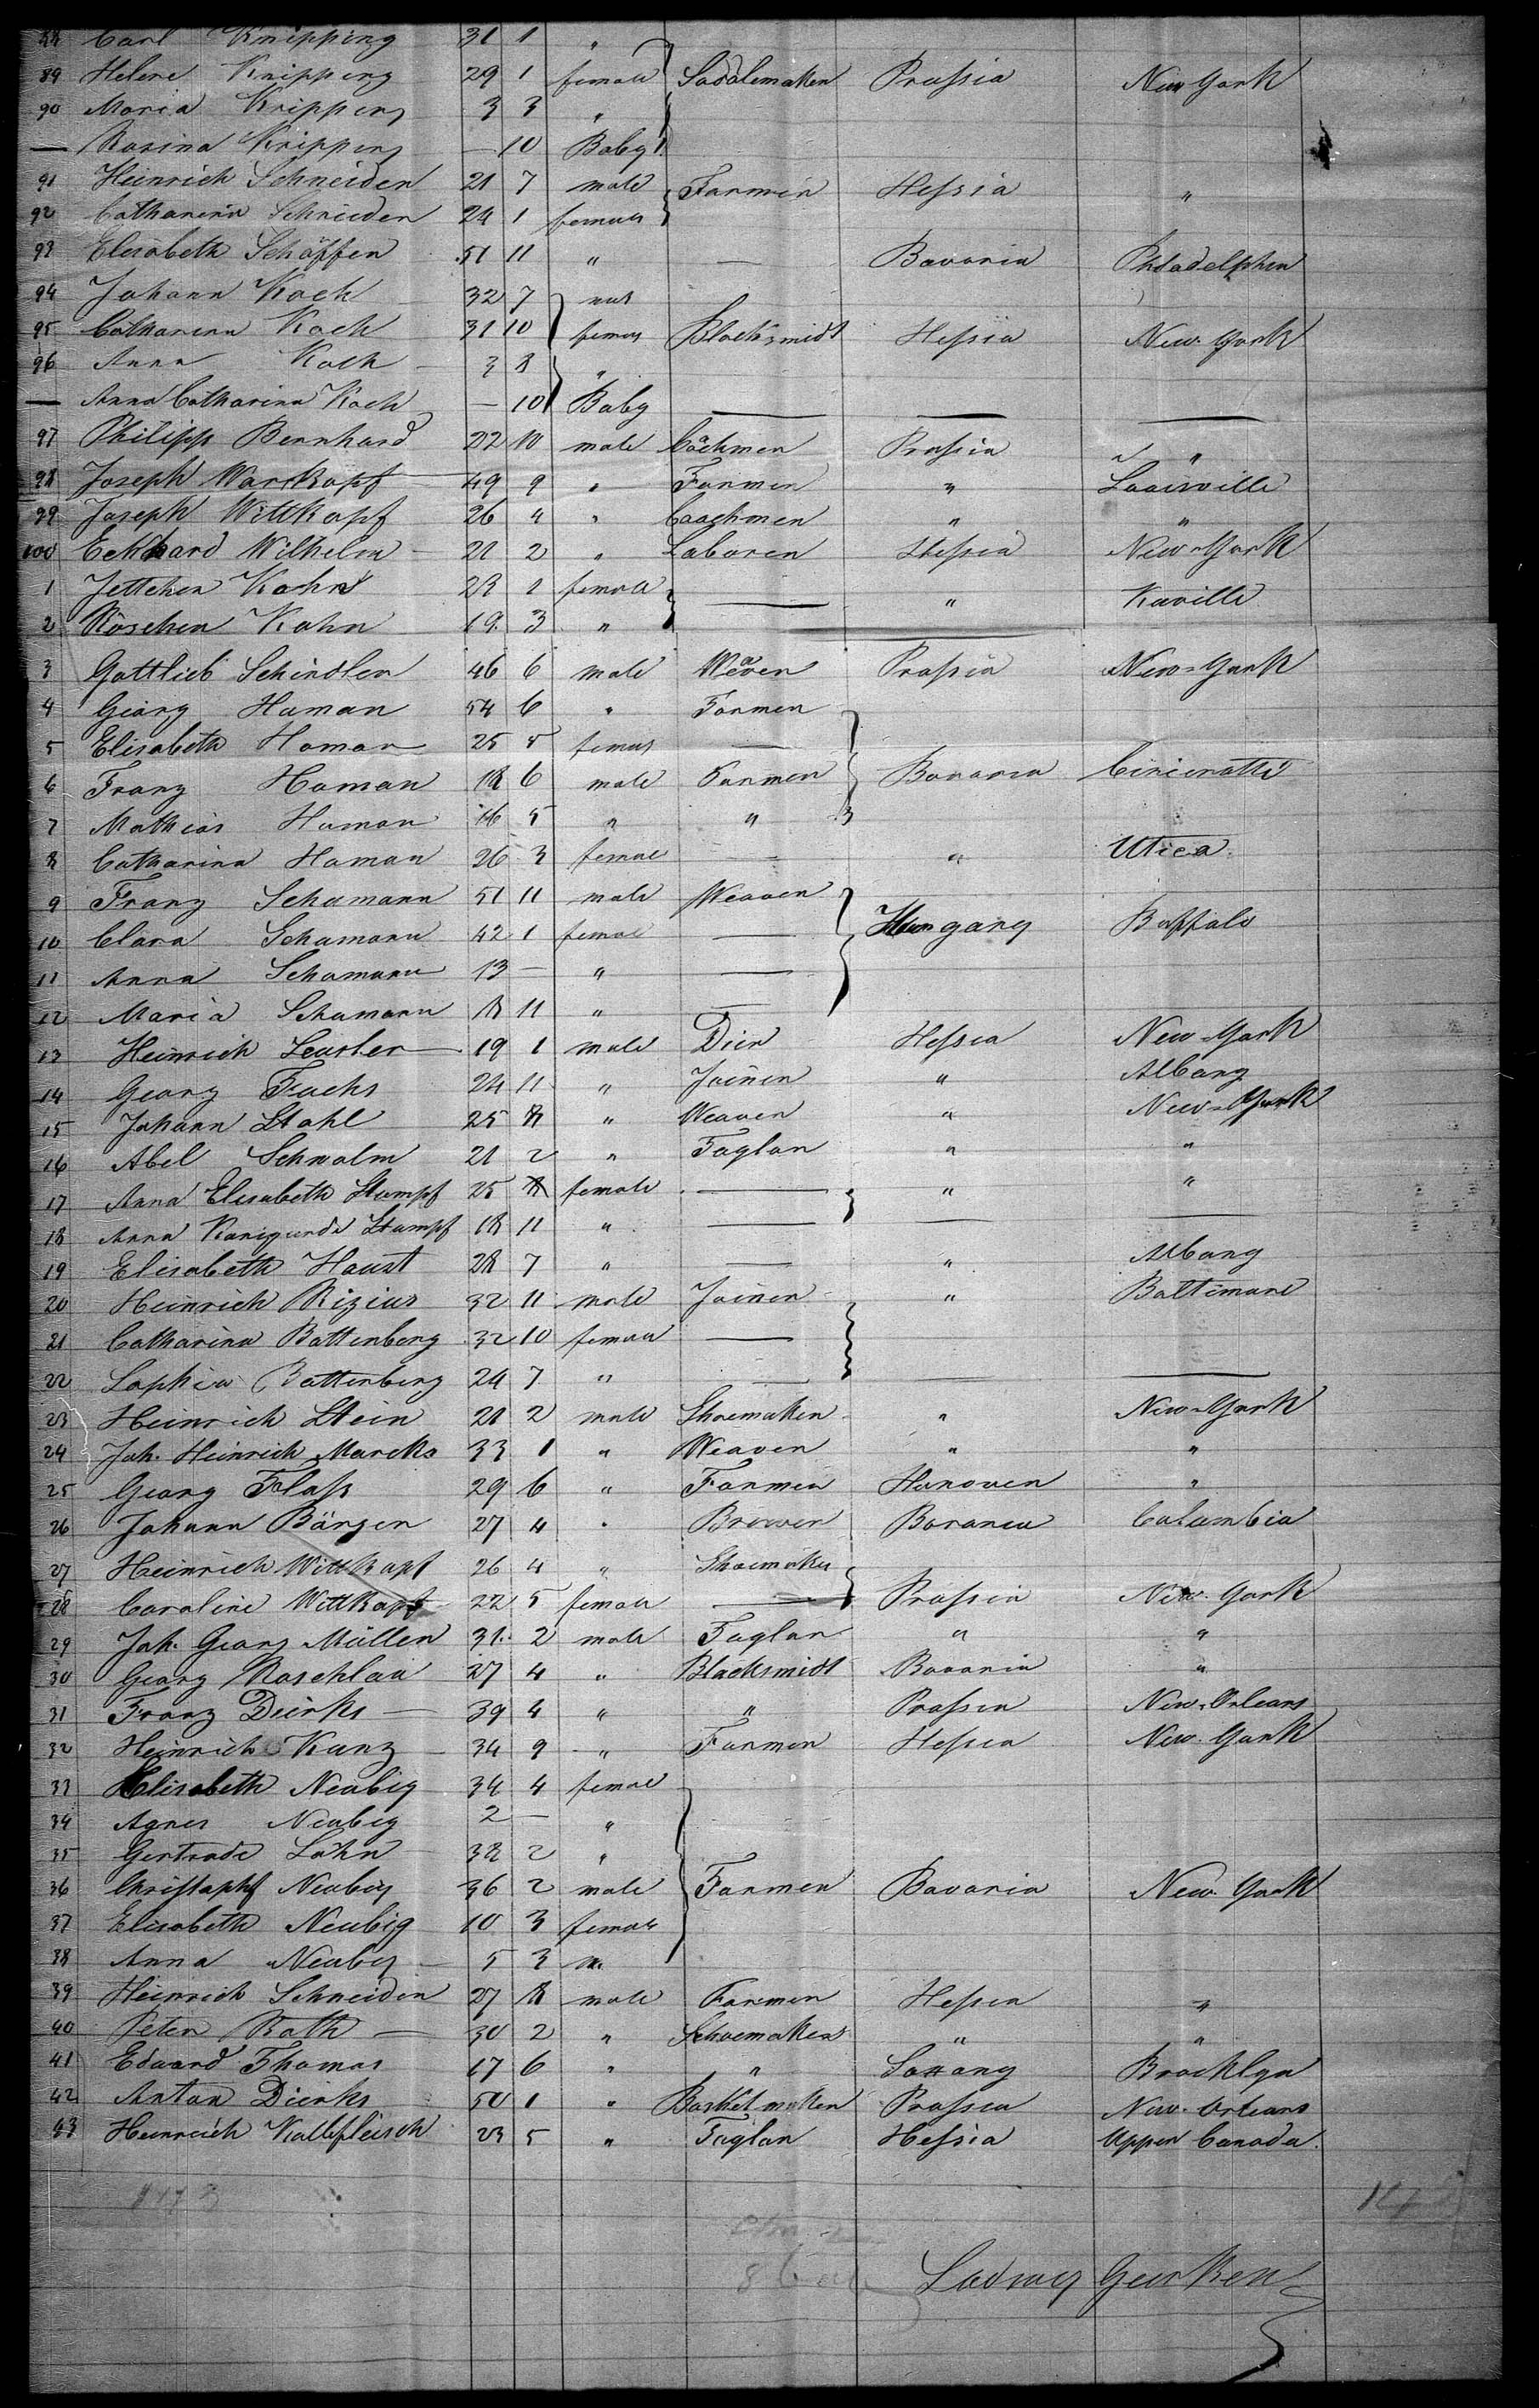 88 Carl Knipping 31 1 "
89 Helene Knipping 29 1 female Saddlemaker Prussia New York
90 Maria Knipping 3 3 "
— Rosina Knipping — 10 Baby
91 Heinrich Schneider 21 7 male Farmer Hessia "
92 Catharina Schneider 24 1 female
93 Elisabeth Schäffer 51 11 " — Bavaria Philadelphia
94 Johann Koch 32 7 male
95 Catharina Koch 31 10 female Blacksmidt Hessia New-York
96 Anna Koch 3 8 "
— Anna Catharina Koch — 10 Baby — — —
97 Philipp Bernhard 22 10 male Coachmen Prussia "
98 Joseph Warkopf 49 9 " Farmer " Louisville
99 Joseph Wittkopf 26 4 " Coachmen " "
100 Eckhard Wilhelm 21 2 " Laborer Hessia New-York
1 Jettchen Kahn 23 1 female — " Kaville
2 Röschen Kahn 19 3 "
3 Gottlieb Schindler 46 6 male Weaver Prussia New-York
4 Georg Haman 54 6 " Farmer
5 Elisabeth Haman 25 5 female —
6 Franz Haman 18 6 male Farmer Bavaria Cincinatti
7 Mathias Haman 16 5 " "
8 Catharina Haman 26 3 female — " Utica
9 Franz Schumann 51 11 male Weaver
10 Clara Schumann 42 1 female — Hungary Buffalo
11 Anna Schumann 13 — " —
12 Maria Schumann 18 11 " —
13 Heinrich Leusler 19 1 male Dier Hessia New-York
14 Georg Fuchs 24 11 " Joiner " Albany
15 Johann Stahl 25 8 " Weaver " New-York
16 Abel Schwalm 21 2 " Taylor " "
17 Anna Elisabeth Stumpf 25 8 female — " "
18 Anna Kunigunde Stumpf 18 11 " — — —
19 Elisabeth Haust 28 7 " — " Albany
20 Heinrich Rizius 32 11 male Joiner " Baltimore
21 Catharina Battenberg 32 10 female —
22 Sophia Battenberg 24 7 " — — —
23 Heinrich Stein 21 2 male Shoemaker " New-York
24 Joh. Heinrich Marcks 33 1 " Weaver " "
25 Georg Flass 29 6 " Farmer Hanover "
26 Johann Börger 27 4 " Brewer Bavaria Columbia
27 Heinrich Wittkopf 26 4 " Shoemaker
28 Caroline Wittkopf 22 5 female — Prussia New-York
29 Joh. Georg Müller 31 2 male Taylor " "
30 Georg Roschlau 27 4 " Blacksmidt Bavaria "
31 Franz Dierks — 39 4 " " Prussia New-Orleans
32 Heinrich Kunz 34 9 " Farmer Hessia New-York
33 Elisabeth Neubig 34 4 female
34 Agnes Neubig 2 — "
35 Gertrude Löhn 38 2 "
36 Christoph Neubig 36 2 male Farmer Bavaria New-York
37 Elisabeth Neubig 10 3 female
38 Anna Neubig 5 3
39 Heinrich Schneider 27 8 male Farmer Hessia "
40 Peter Roth — 30 2 " Schoemaker " "
41 Eduard Thomas 17 6 " " Saxony Brooklyn
42 Anton Dierks 50 1 " Basketmaker Prussia New-Orleans
43 Heinrich Kalbfleisch 23 5 " Taylor Hessia Upper Canada.
Ludwig Gerken